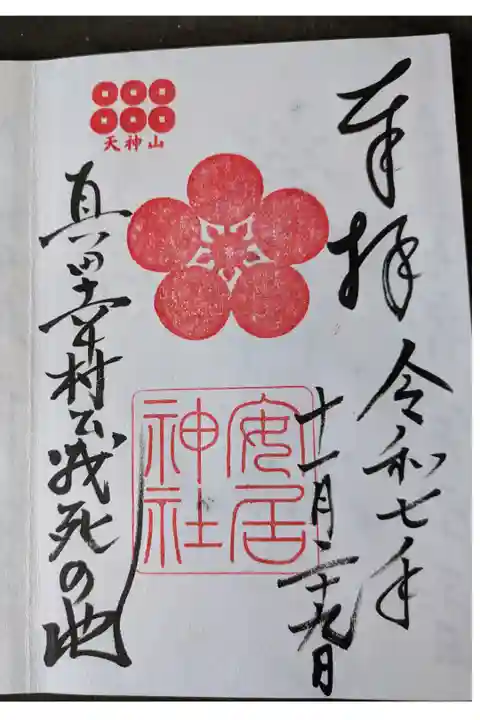 奉拝
令和七年
十一月二十九日
天神山
安居
神社
真田幸村公戦死の地